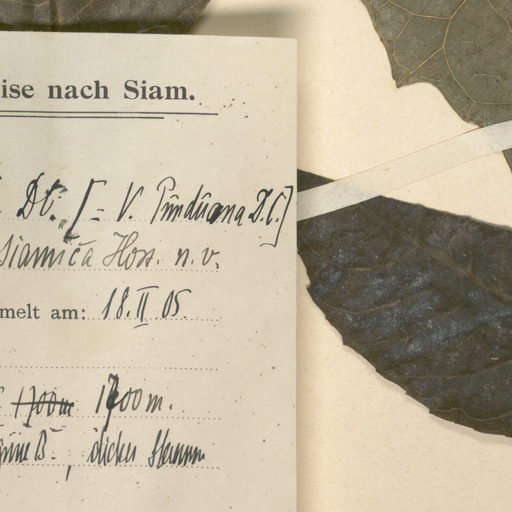 ise nach Siam.
DC. [= V. Punduana D.C.]
Siamica Hoss. n. v.
melt am: 18. II 05.
1700 m 1700 m.
dicker Stamm